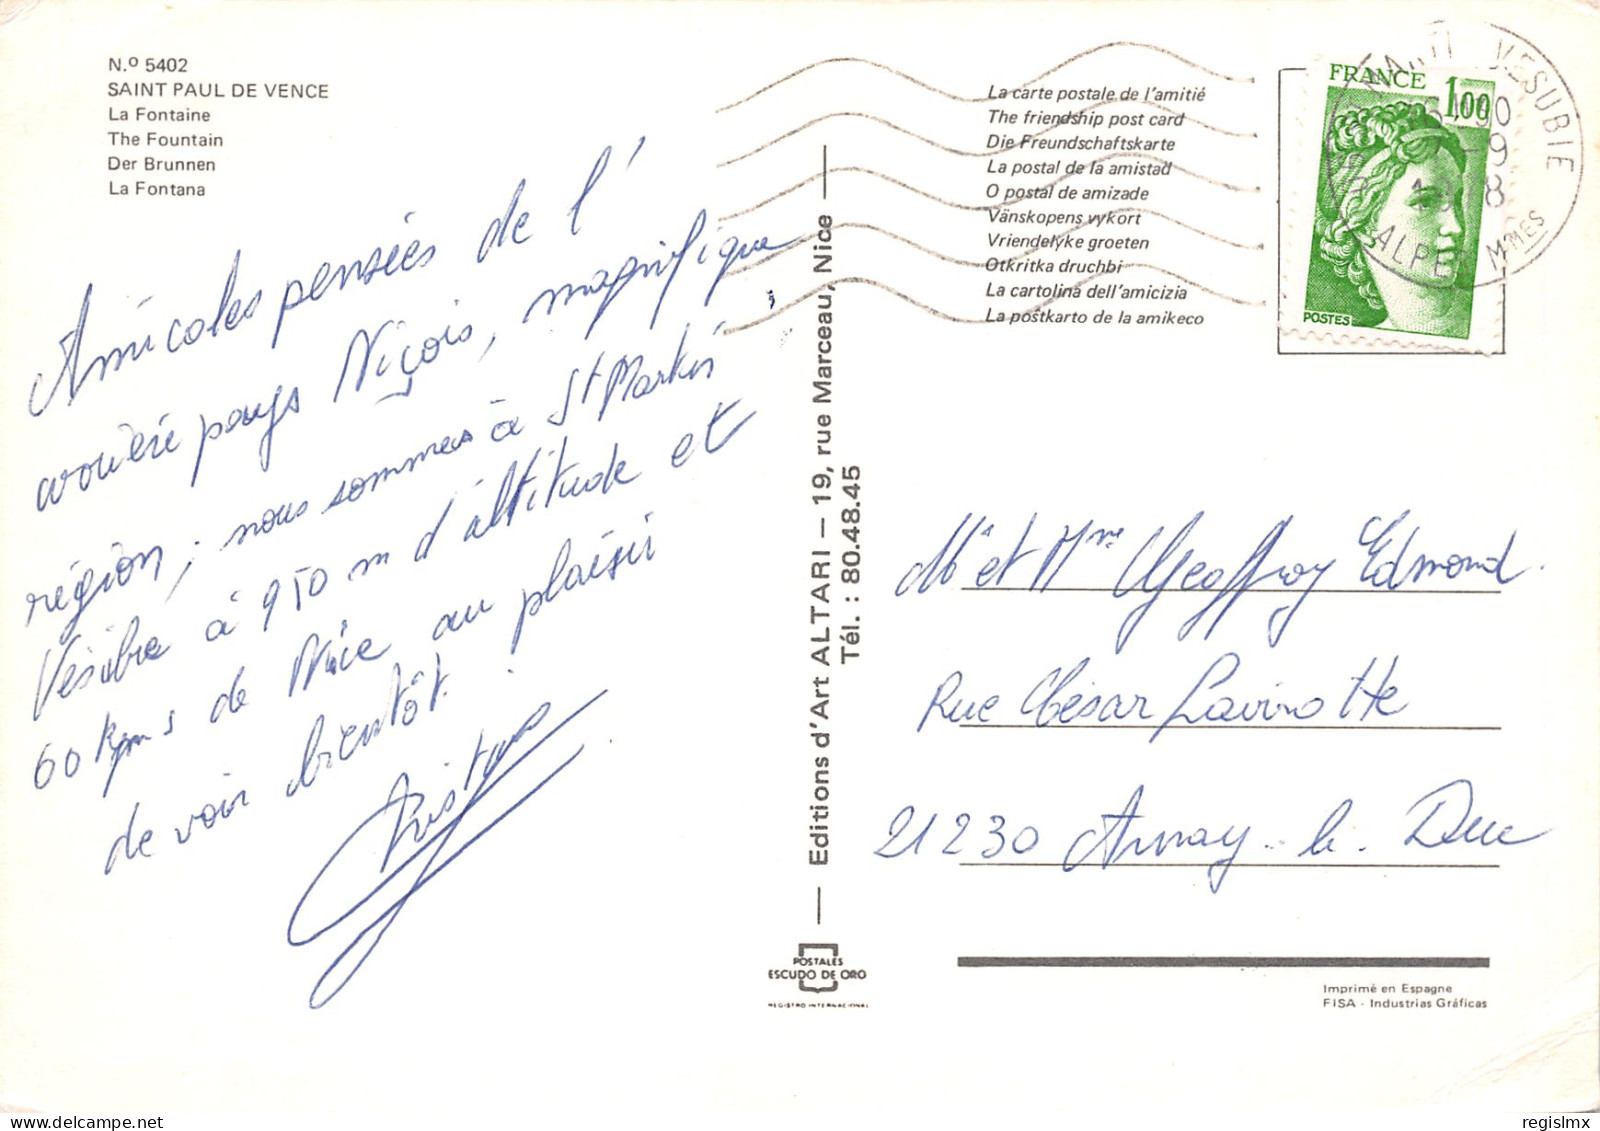 N.º 5402
SAINT PAUL DE VENCE
La Fontaine
The Fountain
Der Brunnen
La Fontana
Amicales pensées de l'
arrière pays Niçois, magnifique
région, nous sommes à St Martin
Vésubie à 950 m d'altitude et
60 kms de Nice au plaisir
de voir bientôt.
Editions d'Art ALTARI — 19, rue Marceau, Nice
Tél. : 80.48.45
POSTALES
ESCUDO DE ORO
REGISTRO INTERNACIONAL
La carte postale de l'amitié
The friendship post card
Die Freundschaftskarte
La postal de la amistad
O postal de amizade
Vänskopens vykort
Vriendelÿke groeten
Otkritka druchbi
La cartolina dell'amicizia
La poŝtkarto de la amikeco
FRANCE
1,00
POSTES
VESUBIE
ALPES MMES
Mr et Mme Geoffroy Edmond.
Rue César Lavirotte
21230 Arnay-le-Duc
Imprimé en Espagne
FISA - Industrias Gráficas
regislmx